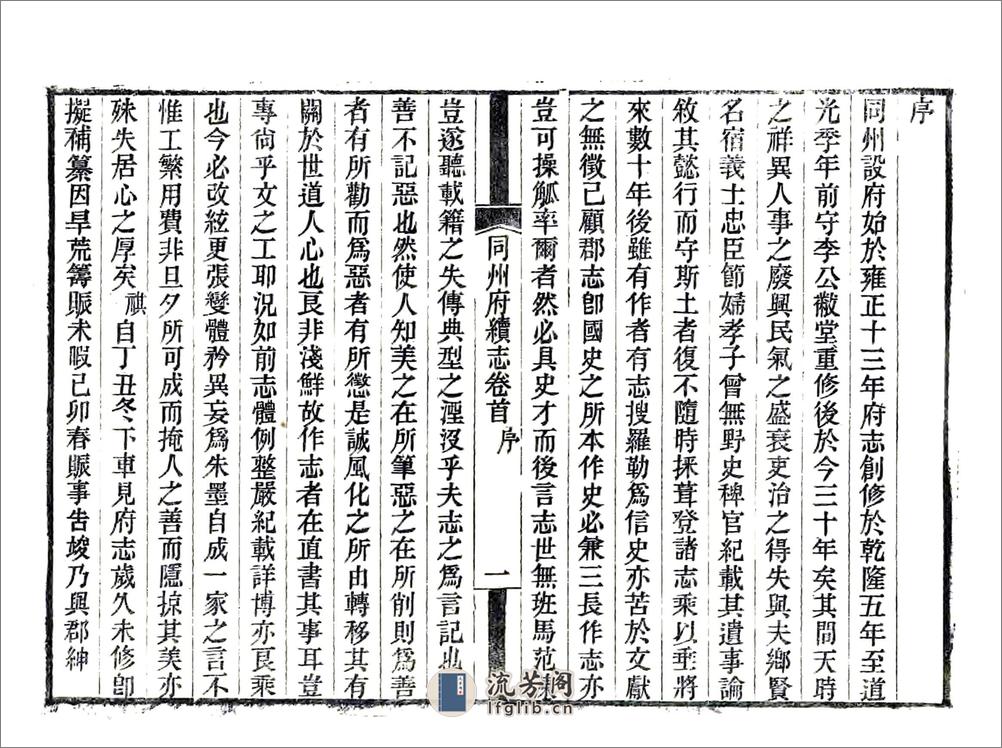 序
同州設府始於雍正十三年府志創修於乾隆五年至道
光季年前守李公黻堂重修後於今三十年矣其間天時
之祥異人事之廢興民氣之盛衰吏治之得失與夫鄉賢
名宿義士忠臣節婦孝子曾無野史稗官紀載其遺事論
敘其懿行而守斯土者復不隨時採葺登諸志乘以垂將
來數十年後雖有作者有志搜羅勒爲信史亦苦於文獻
之無徵已顧郡志卽國史之所本作史必兼三長作志亦
豈可操觚率爾者然必具史才而後言志世無班馬范
同州府續志卷首 序 一
豈遂聽載籍之失傳典型之湮沒乎夫志之爲言記也
善不記惡也然使人知美之在所筆惡之在所削則爲善
者有所勸而爲惡者有所懲是誠風化之所由轉移其有
關於世道人心也良非淺鮮故作志者在直書其事耳豈
專尙乎文之工耶況如前志體例整嚴紀載詳博亦良乘
也今必改絃更張變體矜異妄爲朱墨自成一家之言不
惟工繁用費非旦夕所可成而掩人之善而隱掠其美亦
殊失居心之厚矣祺自丁丑冬下車見府志歲久未修卽
擬補纂因旱荒籌賑未暇己卯春賑事告竣乃與郡紳
流芳阁
lfglib.cn